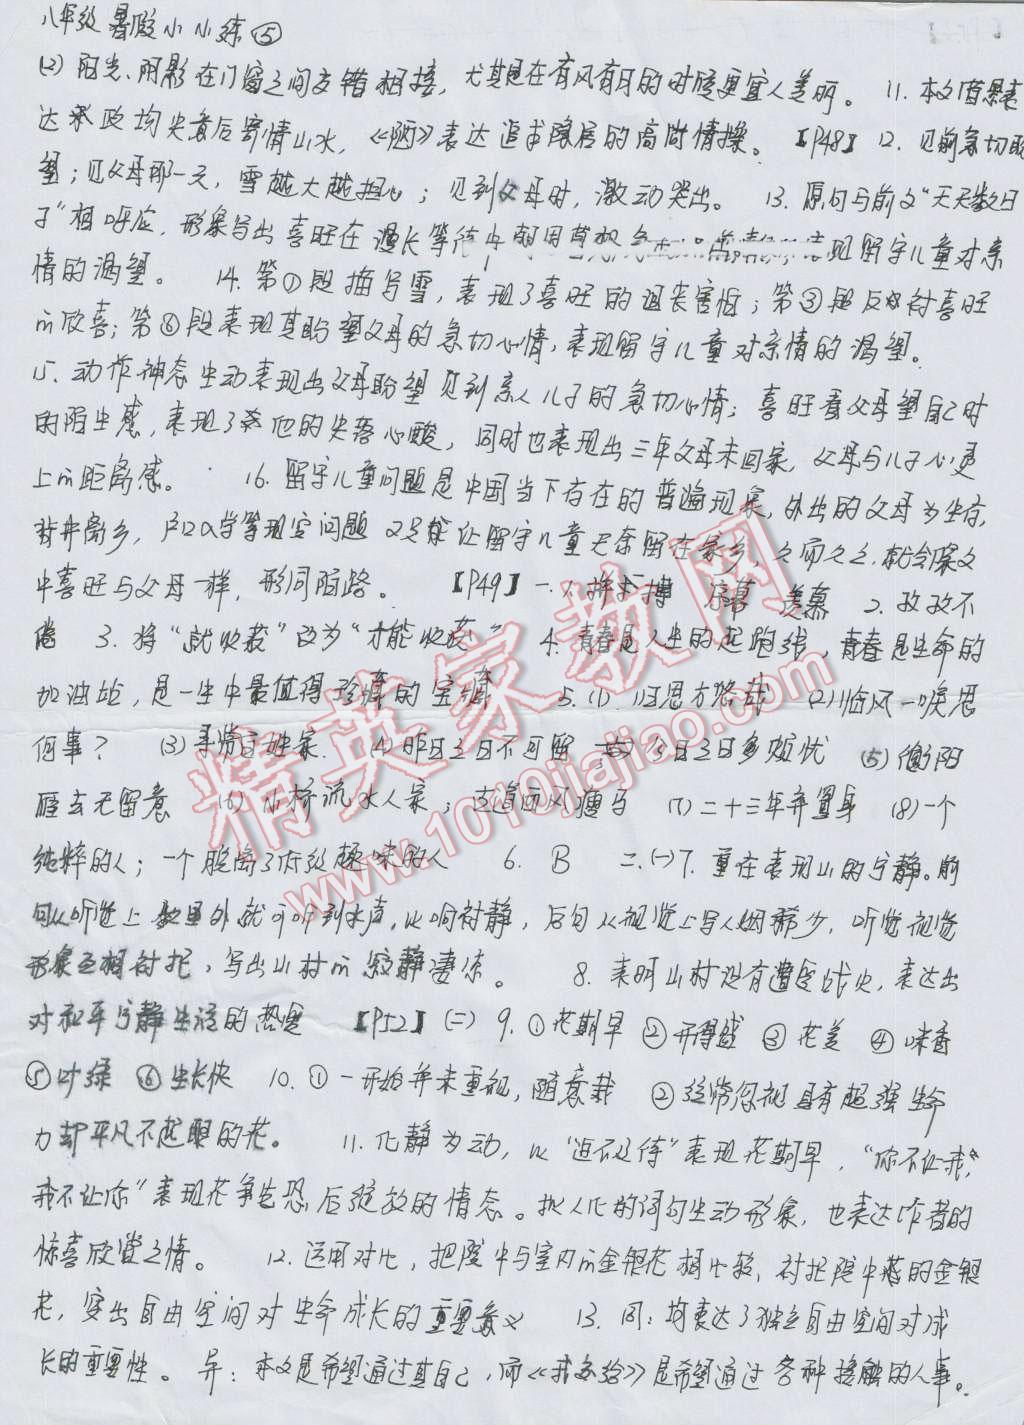 八年级暑假小小练⑤
(2)阳光、阴影在门窗之间交错相接，尤其是在有风有月的时候更宜人美丽。 11. 本文借景表
达求政均失意后寄情山水，《陋》表达追求隐居的高尚情操。 【P48】 12. 见前急切盼
望；见父母那一天，雪越大越担心；见到父母时，激动哭出。 13. 原句与前文“天天数日
子”相呼应，形象写出喜旺在漫长等待中 现留守儿童对亲
情的渴望。 14. 第①段描写雪，表现了喜旺的沮丧害怕；第③段反衬喜旺
的欣喜；第⑧段表现其盼望父母的急切心情，表现留守儿童对亲情的渴望。
15. 动作神态生动表现出父母盼望见到亲人儿子的急切心情；喜旺看父母望自己时
的陌生感，表现了他的失落心酸，同时也表现出三年父母未回家，父母与儿子心灵
上的距离感。 16. 留守儿童问题是中国当下存在的普遍现象，外出的父母为生存，
背井离乡，户口入学等现实问题又只能让留守儿童无奈留在家乡，久而久之，就会像文
中喜旺与父母一样，形同陌路。 【P49】 一、1. 拼搏 序幕 羡慕 2. 孜孜不
倦 3. 将“就收获”改为“才能收获” 4. 青春是人生的起跑线，青春是生命的
加油站，是一生中最值得珍惜的宝藏 5. (1) 归思方悠哉 (2) 临风一唳思
何事？ (3) 寻常百姓家 (4) 昨日之日不可留；今日之日多烦忧 (5) 衡阳
雁去无留意 (6) 小桥流水人家；古道西风瘦马 (7) 二十三年弃置身 (8) 一个
纯粹的人；一个脱离了低级趣味的人 6. B 二、(一) 7. 重在表现山的宁静。前
句从听觉上数里外就可听到水声，以响衬静，后句从视觉上写人烟稀少，听觉视觉
形象互相衬托，写出山村的寂静凄凉。 8. 表明山村没有遭受战火，表达出
对和平宁静生活的热爱 【P52】 (二) 9. ①花期早 ②开得盛 ③花美 ④味香
⑤叶绿 ⑥生长快 10. ①一开始并未重视，随意栽 ②经常忽视具有超强生命
力却平凡不起眼的花。 11. 化静为动，以“迫不及待”表现花期早，“你不让我，
我不让你”表现花争先恐后绽放的情态。拟人化的词句生动形象，也表达作者的
惊喜欣赏之情。 12. 运用对比，把院中与室内的金银花相比较，衬托院中花的金银
花，突出自由空间对生命成长的重要意义 13. 同：均表达了独立自由空间对成
长的重要性。 异：本文是希望通过其自己，而《我交给》是希望通过各种接触的人事。
精英家教网
www.1010jiajiao.com